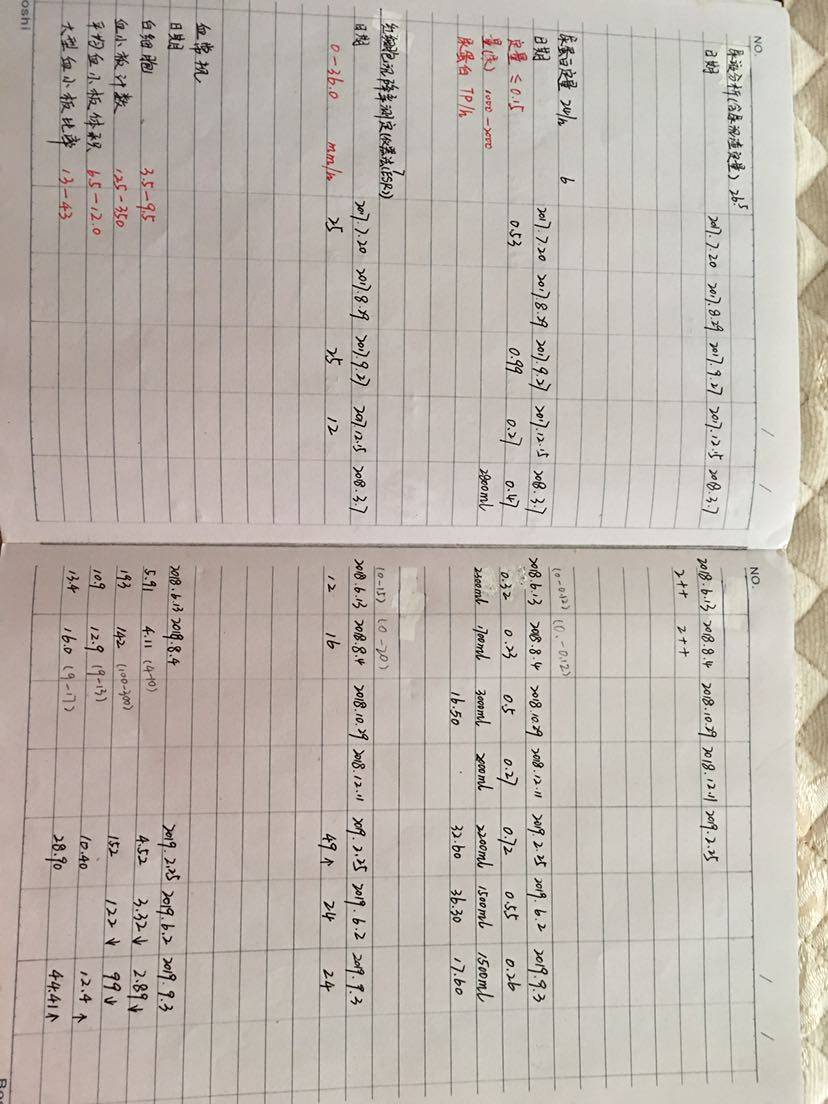 NO.
尿液分析(含尿沉渣定量) 26.5
日期 2017.7.20 2017.8.29 2017.9.27 2017.12.15 2018.3.7
尿蛋白定量 24/h 6
日期 2017.7.20 2017.8.29 2017.9.27 2017.12.15 2018.3.7
定量 ≤0.15 0.53 0.99 0.27 0.47
量(夜) 1000-2000 2800ml
尿蛋白 TP/h
红细胞沉降率测定(仪器法)(ESR)
日期 2017.7.20 2017.8.29 2017.9.27 2017.12.15 2018.3.7
0-36.0 mm/h 25 25 12
血常规
日期
白细胞 3.5-9.5
血小板计数 125-350
平均血小板体积 6.5-12.0
大型血小板比率 13-43
oshi
NO.
2018.6.13 2018.8.4 2018.10.29 2018.12.11 2019.2.25
2++ 2++
(0-0.12) (0.-0.12)
2018.6.13 2018.8.4 2018.10.29 2018.12.11 2019.2.25 2019.6.2 2019.9.3
0.32 0.23 0.5 0.27 0.72 0.55 0.26
2500ml 1700ml 3000ml 2000ml 2200ml 1500ml 1500ml
16.50 32.60 36.30 17.60
(0-15) (0-20)
2018.6.13 2018.8.4 2018.10.29 2018.12.11 2019.2.25 2019.6.2 2019.9.3
12 16 49↑ 24 24
2018.6.13 2018.8.4 2019.2.25 2019.6.2 2019.9.3
5.91 4.11 (4-10) 4.52 3.32↓ 2.89↓
193 142 (100-300) 152 122↓ 99↓
10.9 12.9 (9-13) 10.40 12.4↑
13.4 16.0 (9-17) 28.90 44.41↑